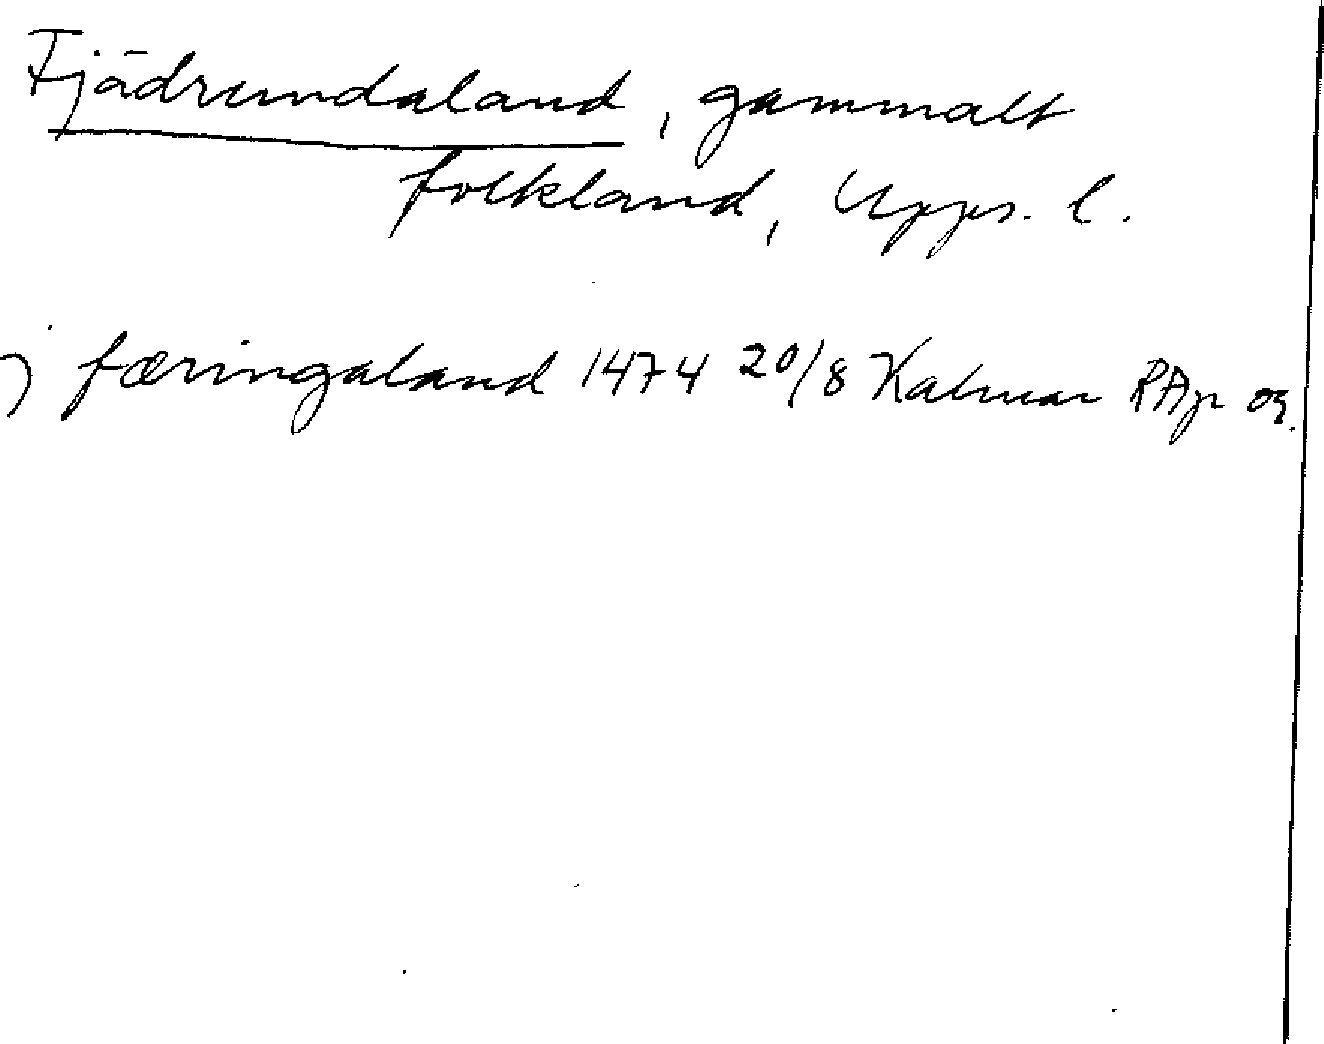 Fjädrundaland, gammalt
folkland, Upps. l.
j færingaland 1474 20/8 Kalmar RApp or.